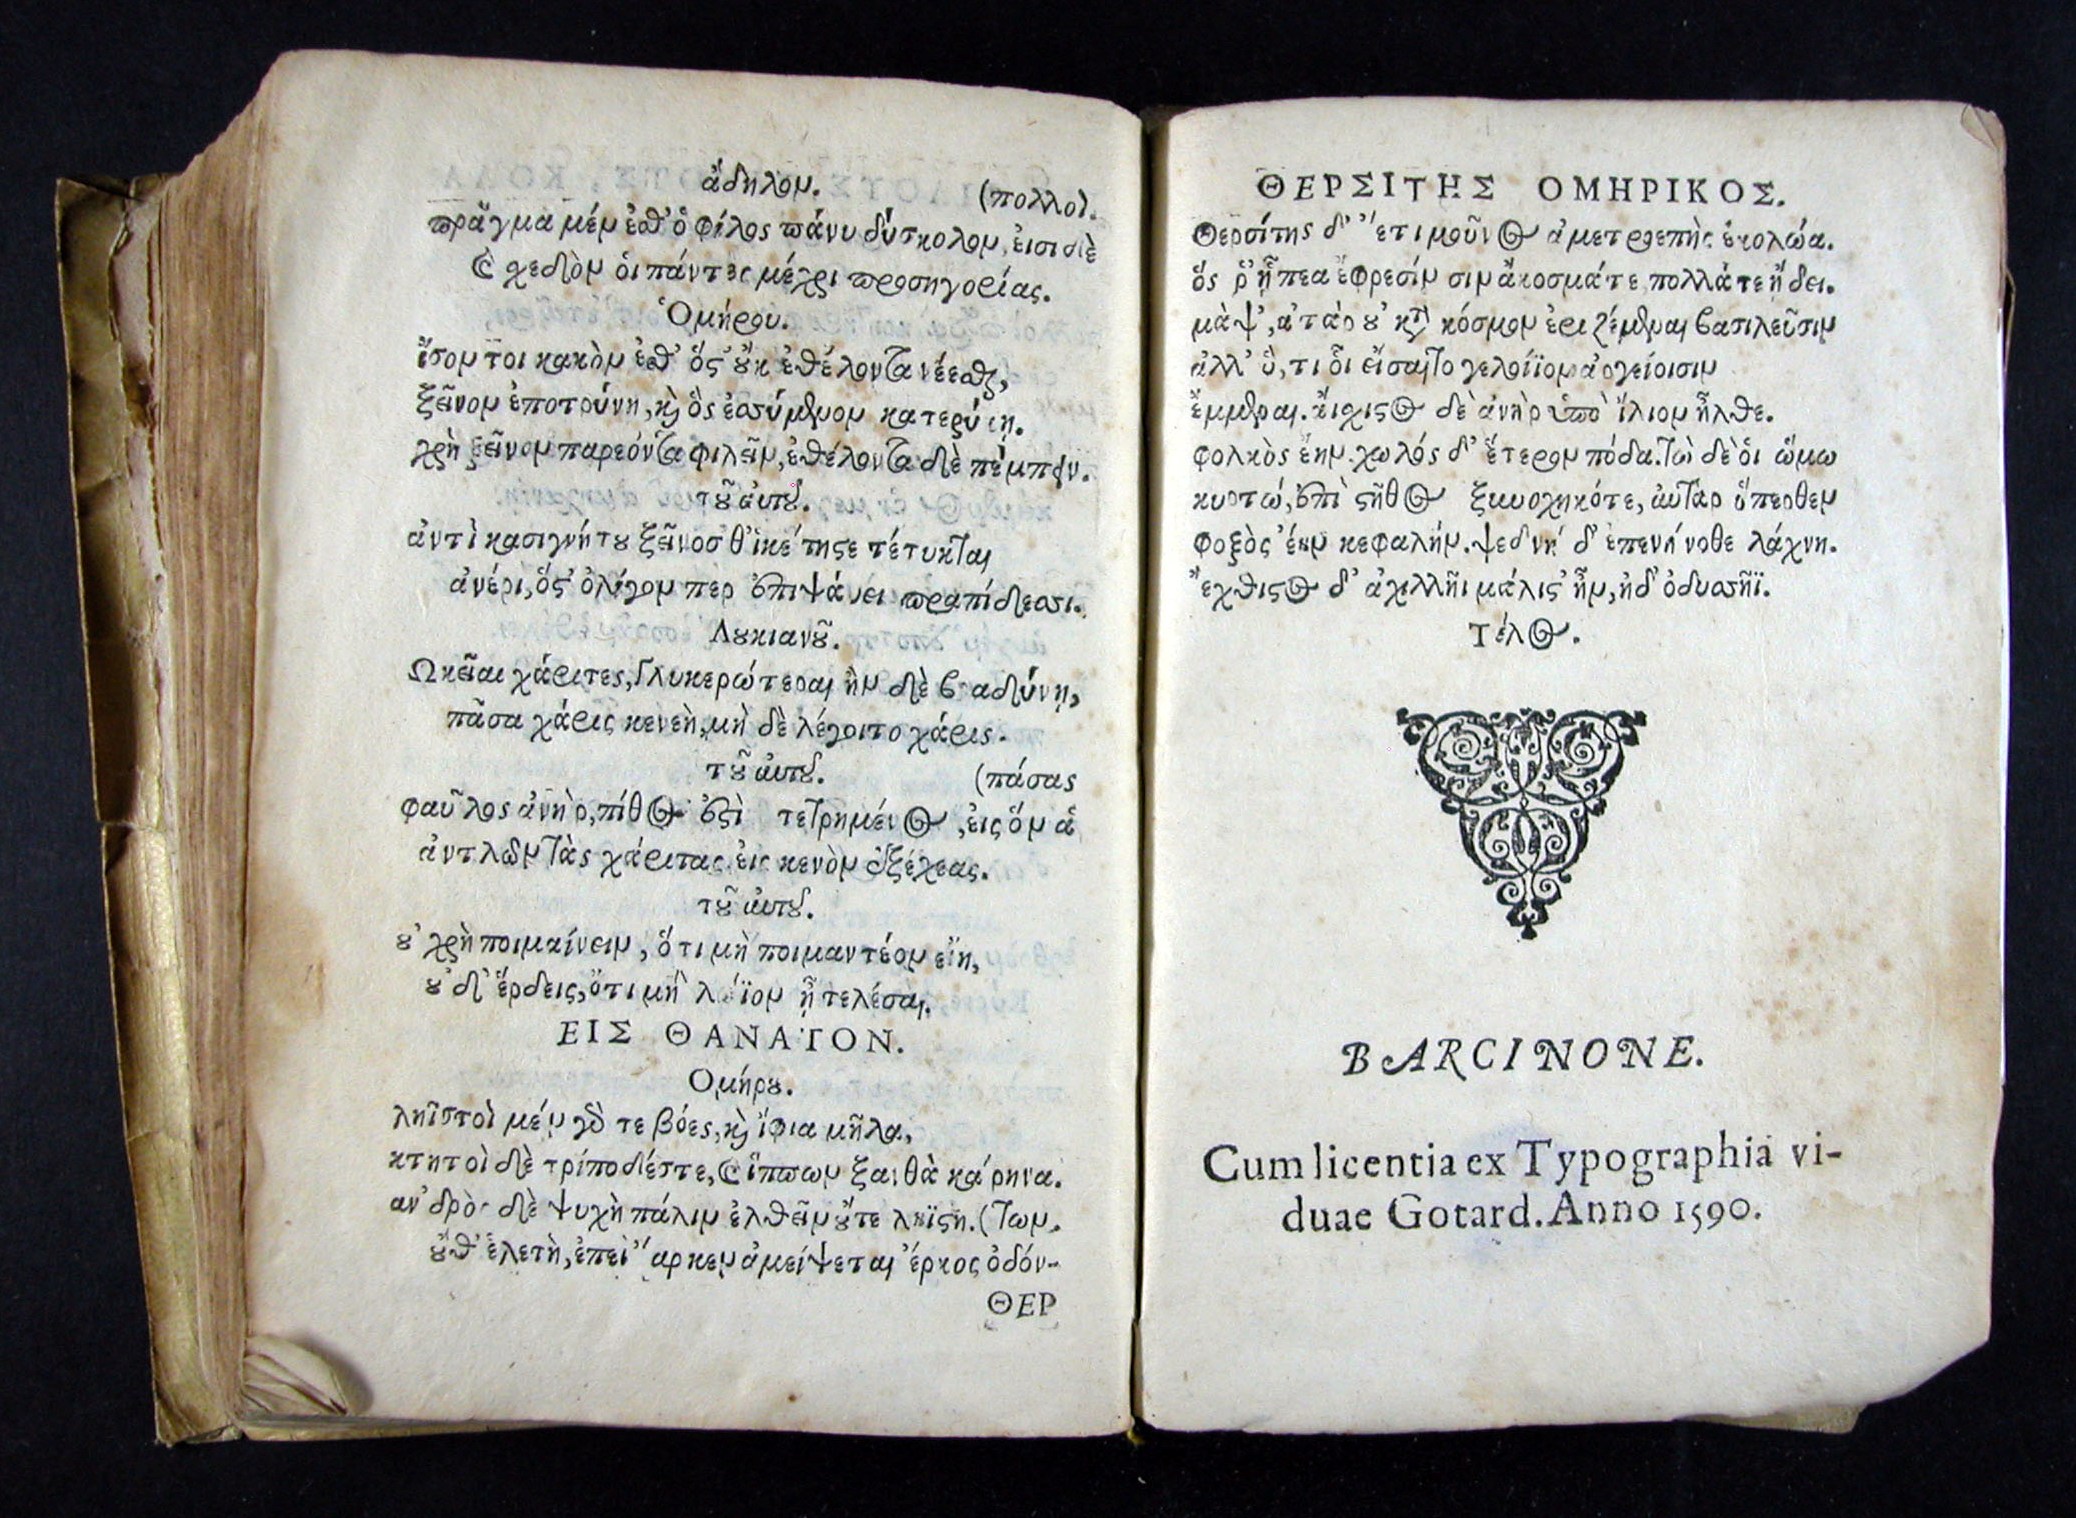 ἄδηλον.
(πολλοὶ.
πρᾶγμα μέν ἐσθ' ὁ φίλος πάνυ δύσκολον, εἰσι δὲ
σχεδὸν ὁι πάντες μέχρι προσηγορίας.
Ὁμήρου.
ἶσον τοι κακὸν ἐσθ' ὅς' οὐκ ἐθέλοντα νέεσθαι,
ξεῖνον ἐποτρύνη, καὶ ὃς ἐσσύμενον κατερύκη.
χρὴ ξεῖνον παρεόντα φιλεῖν, ἐθέλοντα δὲ πέμπειν.
τοῦ αὐτοῦ.
ἀντὶ κασιγνήτου ξεῖνόσ θ' ἱκέτης τε τέτυκται
ἀνέρι, ὅς' ὀλίγον περ ἐπιψάυει πραπίδεσσι.
Λουκιανοῦ.
Ωκεῖαι χάριτες, γλυκερώτεραι ἢν δὲ βραδύνη,
πᾶσα χάρις κενεὴ, μὴ δὲ λέγοιτο χάρις.
τοῦ αὐτοῦ.
(πάσας
φαῦλος ἀνὴρ, πίθος ἐστὶ τετρημένος, εἰς ὅν ἁ
ἀντλῶν τὰς χάριτας εἰς κενὸν ἐξέχεας.
τοῦ αὐτοῦ.
οὐ χρὴ ποιμαίνειν, ὅτι μὴ ποιμαντέον εἴη,
οὐδ' ἔρδεις, ὅτι μὴ λώϊον ἦ τελέσαι.
ΕΙΣ ΘΑΝΑΤΟΝ.
Ομήρου.
ληϊστοὶ μέν γὰρ τε βόες, καὶ ἴφια μῆλα,
κτητοὶ δὲ τρίποδέστε, καὶ ἵππων ξανθὰ κάρηνα.
ανδρὸς δὲ ψυχὴ πάλιν ἐλθεῖν οὔτε λεϊστὴ. (των.
οὔθ' ἑλετὴ, ἐπεὶ ἄρκεν ἀμείψεται ἕρκος ὀδόν-
ΘΕΡ
ΘΕΡΣΙΤΗΣ ΟΜΗΡΙΚΟΣ.
Θερσίτης δ' ἔτι μοῦνος ἀμετροεπὴς ἐκολώα.
ὅς ῥ' ἧπεα ἔφρεσίν σιν ἄκοσμάτε πολλάτε ᾔδει.
μὰψ, ἀτὰρ οὐ κατὰ κόσμον ἐριζέμεναι βασιλεῦσιν
ἀλλ' ὅ, τι ὃι εἴσαιτο γελοίϊον ἀργείοισιν
ἔμμεναι. αἴχιστος δὲ ἀνὴρ ὑπὸ ἴλιον ἦλθε.
φολκὸς ἔην. χωλός δ' ἕτερον πόδα. τὼ δὲ ὁι ὤμω
κυρτώ, ἐπὶ στῆθος ξυνοχηκότε, ἀυτὰρ ὕπερθεν
φοξὸς ἔην κεφαλήν. ψεδνὴ δ' ἐπενήνοθε λάχνη.
ἔχθιστος δ' ἀχιλλῆι μάλιστ' ἦν, ἠδ' ὀδυσσῆϊ.
Τέλος.
BARCINONE.
Cum licentia ex Typographia vi-
duae Gotard. Anno 1590.